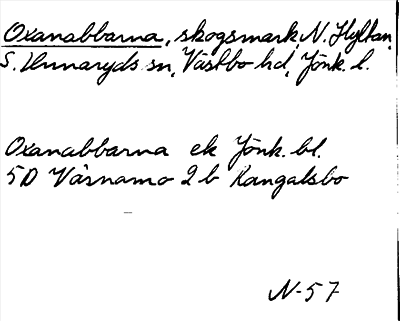 Oxanabbarna, skogsmark, N. Hyltan,
S. Unnaryds sn, Västbo hd, Jönk. l.
Oxanabbarna ek Jönk. bl.
5D Värnamo 2b Kangalsbo
N-57